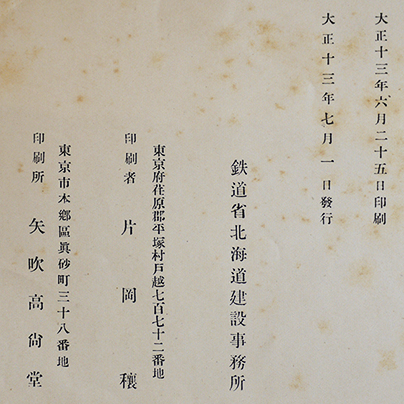 大正十三年六月二十五日印刷
大正十三年七月一日發行
鉄道省北海道建設事務所
東京府荏原郡平塚村戸越七百七十二番地
印刷者 片岡穰
東京市本鄉區眞砂町三十八番地
印刷所 矢吹高尙堂